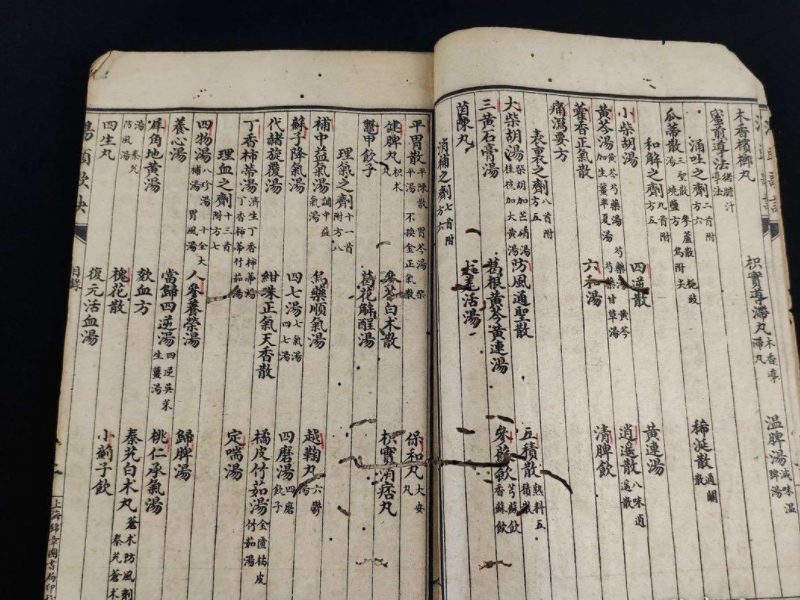 木香檳榔丸 枳實導滯丸 木香導滯丸 溫脾湯 減味溫脾湯
蜜煎導法 豬膽汁導法
涌吐之劑 二首附方六
瓜蒂散 三聖散 參蘆散 梔豉湯 燒鹽方 烏附尖 稀涎散 通關散
和解之劑 九首附方五
小柴胡湯 四逆散 黃連湯
黃芩湯 黃芩芍藥湯 加生薑半夏湯 芍藥黃芩 芍藥甘草湯 逍遙散 八味逍遙散
藿香正氣散 六和湯 清脾飲
痛瀉要方
表裏之劑 八首附方五
大柴胡湯 柴胡加芒硝湯 桂枝加大黃湯 防風通聖散 五積散 熟料五積散
三黃石膏湯 葛根黃芩黃連湯 參蘇飲 芎蘇飲 香蘇飲
茵陳丸 羌活湯
消補之劑 七首附方六
平胃散 平陳散 胃苓湯 柴平湯 不換金正氣散 保和丸 大安丸
健脾丸 枳朮丸 參苓白朮散 枳實消痞丸
鱉甲飲子 葛花解酲湯
理氣之劑 十一首附方八
補中益氣湯 調中益氣湯 烏藥順氣湯 越鞠丸 六鬱湯
蘇子降氣湯 四七湯 七氣湯 四七湯 四磨湯 四磨飲子
代赭旋覆湯 紺珠正氣天香散 橘皮竹茹湯 金匱橘皮竹茹湯
丁香柿蒂湯 濟生丁香柿蒂湯 丁香柿蒂竹茹湯 定喘湯
理血之劑 十三首附方七
四物湯 八珍湯 十全大補湯 胃風湯 人參養榮湯 歸脾湯
養心湯 當歸四逆湯 四逆吳茱生薑湯 桃仁承氣湯
犀角地黃湯 欬血方 秦艽白朮丸 蒼朮防風劑 秦艽蒼朮湯
秦艽防風湯 槐花散 小薊子飲
四生丸 復元活血湯
湯頭歌訣
目錄
上海錦章圖書局印